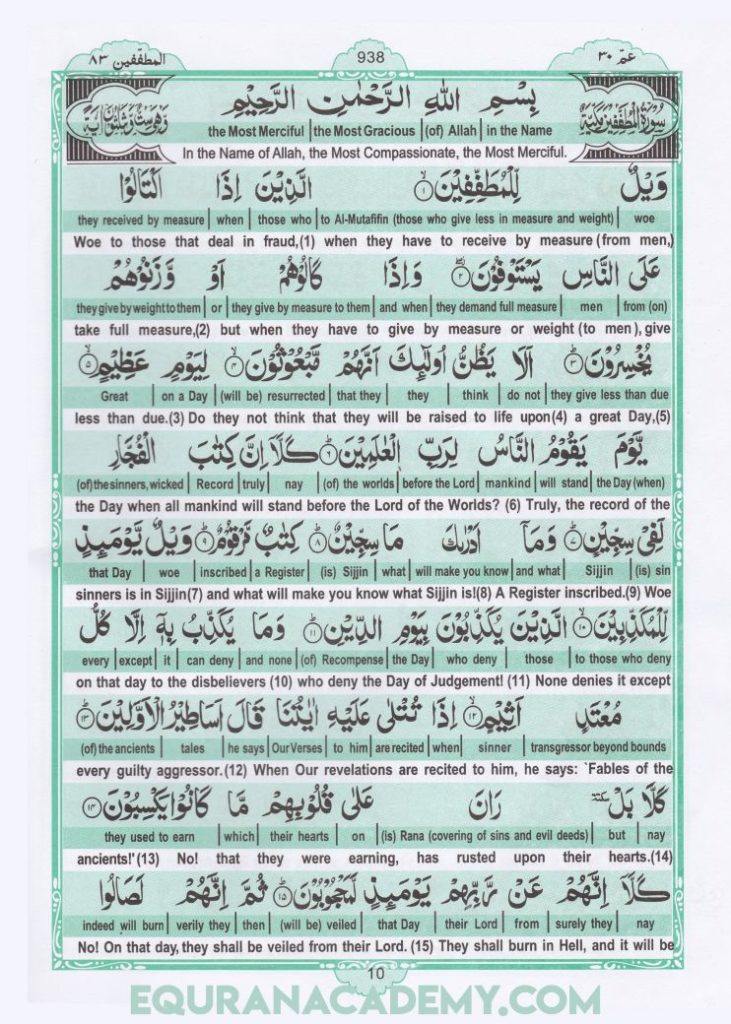 المطففين ٨٣ 938 عم ٣٠
بِسْمِ اللهِ الرَّحْمٰنِ الرَّحِيْمِ
the Most Merciful | the Most Gracious | (of) Allah | in the Name
In the Name of Allah, the Most Compassionate, the Most Merciful.
وَيْلٌ لِّلْمُطَفِّفِيْنَ ۙ﴿١﴾ الَّذِيْنَ اِذَا اكْتَالُوْا
they received by measure | when | those who | to Al-Mutafifin (those who give less in measure and weight) | woe
Woe to those that deal in fraud,(1) when they have to receive by measure (from men,)
عَلَى النَّاسِ يَسْتَوْفُوْنَ ﴿٢﴾ وَاِذَا كَالُوْهُمْ اَوْ وَّزَنُوْهُمْ
they give by weight to them | or | they give by measure to them | and when | they demand full measure | men | from (on)
take full measure,(2) but when they have to give by measure or weight (to men), give
يُخْسِرُوْنَ ﴿٣﴾ اَلَا يَظُنُّ اُولٰٓئِكَ اَنَّهُمْ مَّبْعُوْثُوْنَ ﴿٤﴾ لِيَوْمٍ عَظِيْمٍ ﴿٥﴾
Great | on a Day | (will be) resurrected | that they | they | think | do not | they give less than due
less than due.(3) Do they not think that they will be raised to life upon(4) a great Day,(5)
يَّوْمَ يَقُوْمُ النَّاسُ لِرَبِّ الْعٰلَمِيْنَ ﴿٦﴾ كَلَّاۤ اِنَّ كِتٰبَ الْفُجَّارِ
(of)the sinners, wicked | Record | truly | nay | (of) the worlds | before the Lord | mankind | will stand | the Day (when)
the Day when all mankind will stand before the Lord of the Worlds? (6) Truly, the record of the
لَفِيْ سِجِّيْنٍ ﴿٧﴾ وَمَاۤ اَدْرٰىكَ مَا سِجِّيْنٌ ﴿٨﴾ كِتٰبٌ مَّرْقُوْمٌ ﴿٩﴾ وَيْلٌ يَّوْمَئِذٍ
that Day | woe | inscribed | a Register | (is) Sijjin | what | will make you know | and what | Sijjin | (is) sin
sinners is in Sijjin(7) and what will make you know what Sijjin is!(8) A Register inscribed.(9) Woe
لِّلْمُكَذِّبِيْنَ ﴿١٠﴾ الَّذِيْنَ يُكَذِّبُوْنَ بِيَوْمِ الدِّيْنِ ﴿١١﴾ وَمَا يُكَذِّبُ بِهٖۤ اِلَّا كُلُّ
every | except | it | can deny | and none | (of) Recompense | the Day | who deny | those | to those who deny
on that day to the disbelievers (10) who deny the Day of Judgement! (11) None denies it except
مُعْتَدٍ اَثِيْمٍ ﴿١٢﴾ اِذَا تُتْلٰى عَلَيْهِ اٰيٰتُنَا قَالَ اَسَاطِيْرُ الْاَوَّلِيْنَ ﴿١٣﴾
(of) the ancients | tales | he says | Our Verses | to him | are recited | when | sinner | transgressor beyond bounds
every guilty aggressor.(12) When Our revelations are recited to him, he says: `Fables of the
كَلَّا بَلْ ٚ رَانَ عَلٰى قُلُوْبِهِمْ مَّا كَانُوْا يَكْسِبُوْنَ ﴿١٤﴾
they used to earn | which | their hearts | on | (is) Rana (covering of sins and evil deeds) | but | nay
ancients!' (13) No! that they were earning, has rusted upon their hearts.(14)
كَلَّاۤ اِنَّهُمْ عَنْ رَّبِّهِمْ يَوْمَئِذٍ لَّمَحْجُوْبُوْنَ ﴿١٥﴾ ثُمَّ اِنَّهُمْ لَصَالُوا
indeed will burn | verily they | then | (will be) veiled | that Day | their Lord | from | surely they | nay
No! On that day, they shall be veiled from their Lord. (15) They shall burn in Hell, and it will be
10
EQURANACADEMY.COM